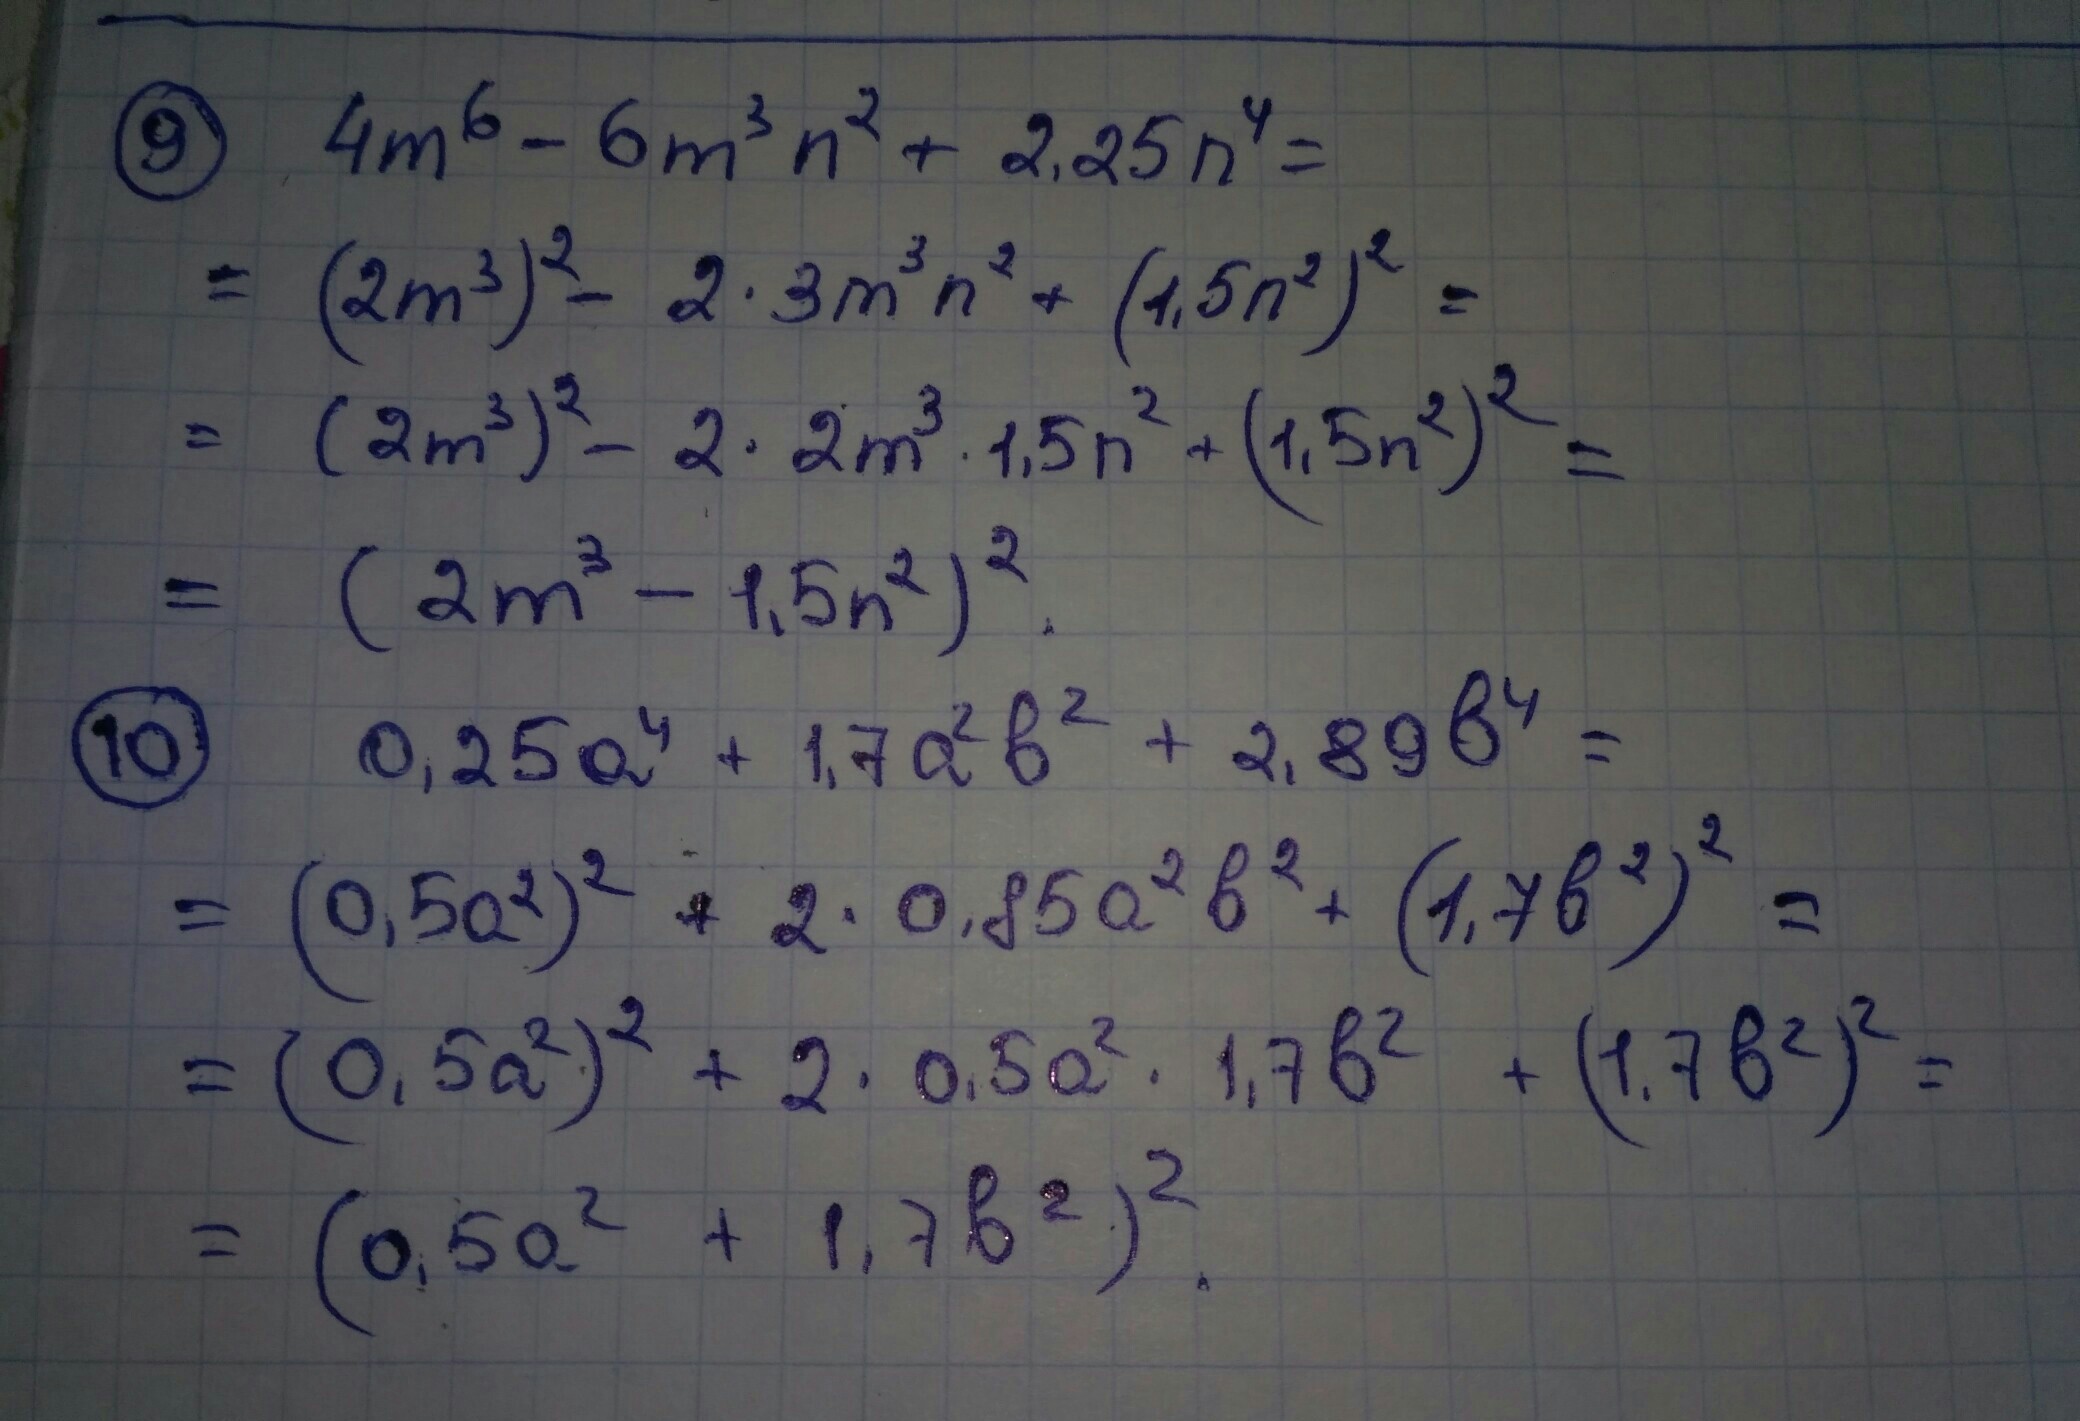 9 4m⁶ - 6m³n² + 2,25n⁴ =
= (2m³)² - 2·3m³n² + (1,5n²)² =
= (2m³)² - 2·2m³·1,5n² + (1,5n²)² =
= (2m³ - 1,5n²)².
10 0,25a⁴ + 1,7a²b² + 2,89b⁴ =
= (0,5a²)² + 2·0,85a²b² + (1,7b²)² =
= (0,5a²)² + 2·0,5a²·1,7b² + (1,7b²)² =
= (0,5a² + 1,7b²)².